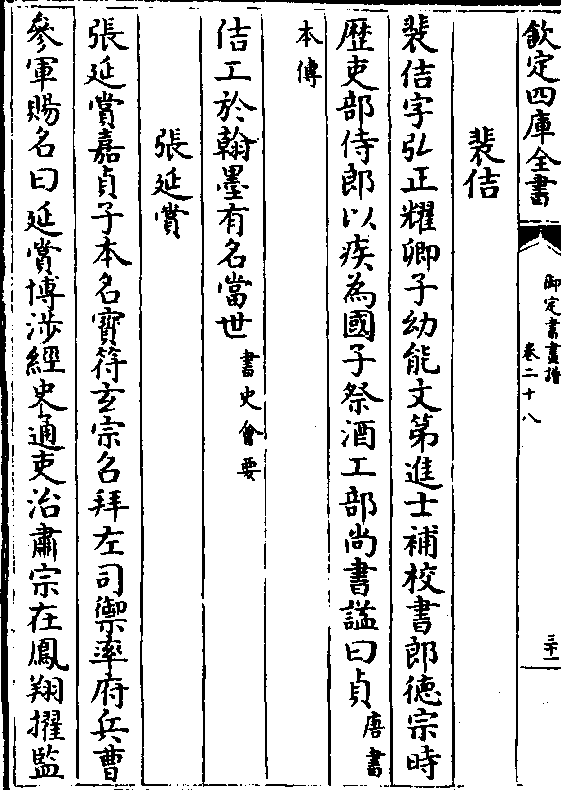 欽定四庫全書
御定書畫譜
卷二十八
三十一
裴佶
裴佶字弘正耀卿子幼能文第進士補校書郎徳宗時
歴吏部侍郎以疾為國子祭酒工部尚書謚曰貞唐書
本傳
佶工於翰墨有名當世書史會要
張延賞
張延賞嘉貞子本名寳符玄宗名拜左司禦率府兵曹
參軍賜名曰延賞博涉經史通吏治肅宗在鳳翔擢監